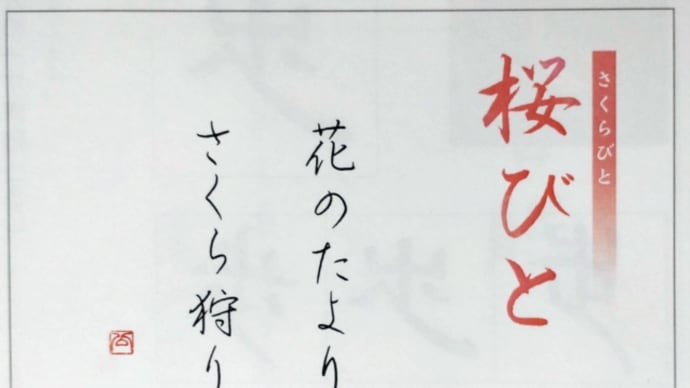 さくらびと
桜びと
花のたより
さくら狩り